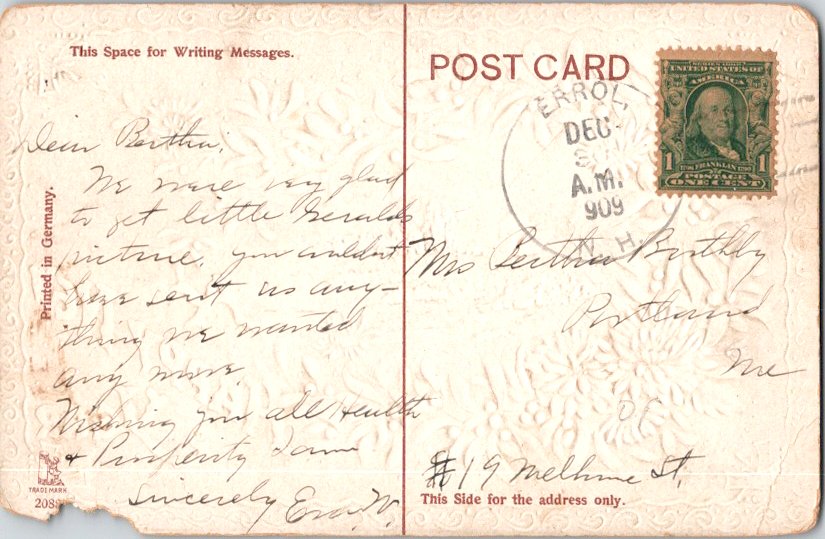 This Space for Writing Messages.
Dear Bertha,
We were very glad
to get little Geralds
picture, you couldn't
have sent us any-
thing we wanted
any more.
Wishing you all Health
& Prosperity I am
Sincerely Eva W.
Printed in Germany.
TRADE MARK
208
POST CARD
ERROL,
DEC
A.M.
909
N.H.
SERIES 1902
UNITED STATES OF
AMERICA
1 FRANKLIN 1
POSTAGE
ONE CENT
Mrs Bertha
Portland
Me
#19 St,
This Side for the address only.